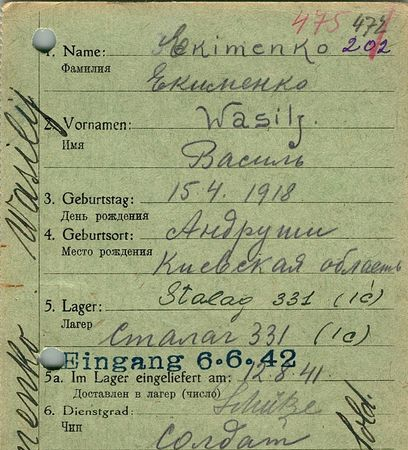 475 472
1. Name: Jekimenko 202
Фамилия
Екименко
2. Vornamen: Wasilj.
Имя
Василь
3. Geburtstag: 15.4. 1918
День рождения
4. Geburtsort: Андруши
Место рождения
Киевская область
5. Lager: Stalag 331 (1c)
Лагер
Сталаг 331 (1c)
Eingang 6.6.42
5a. Im Lager eingeliefert am: 12.8.41.
Доставлен в лагер (число)
6. Dienstgrad: Schütze
Чин
солдат
Wasilj
menko